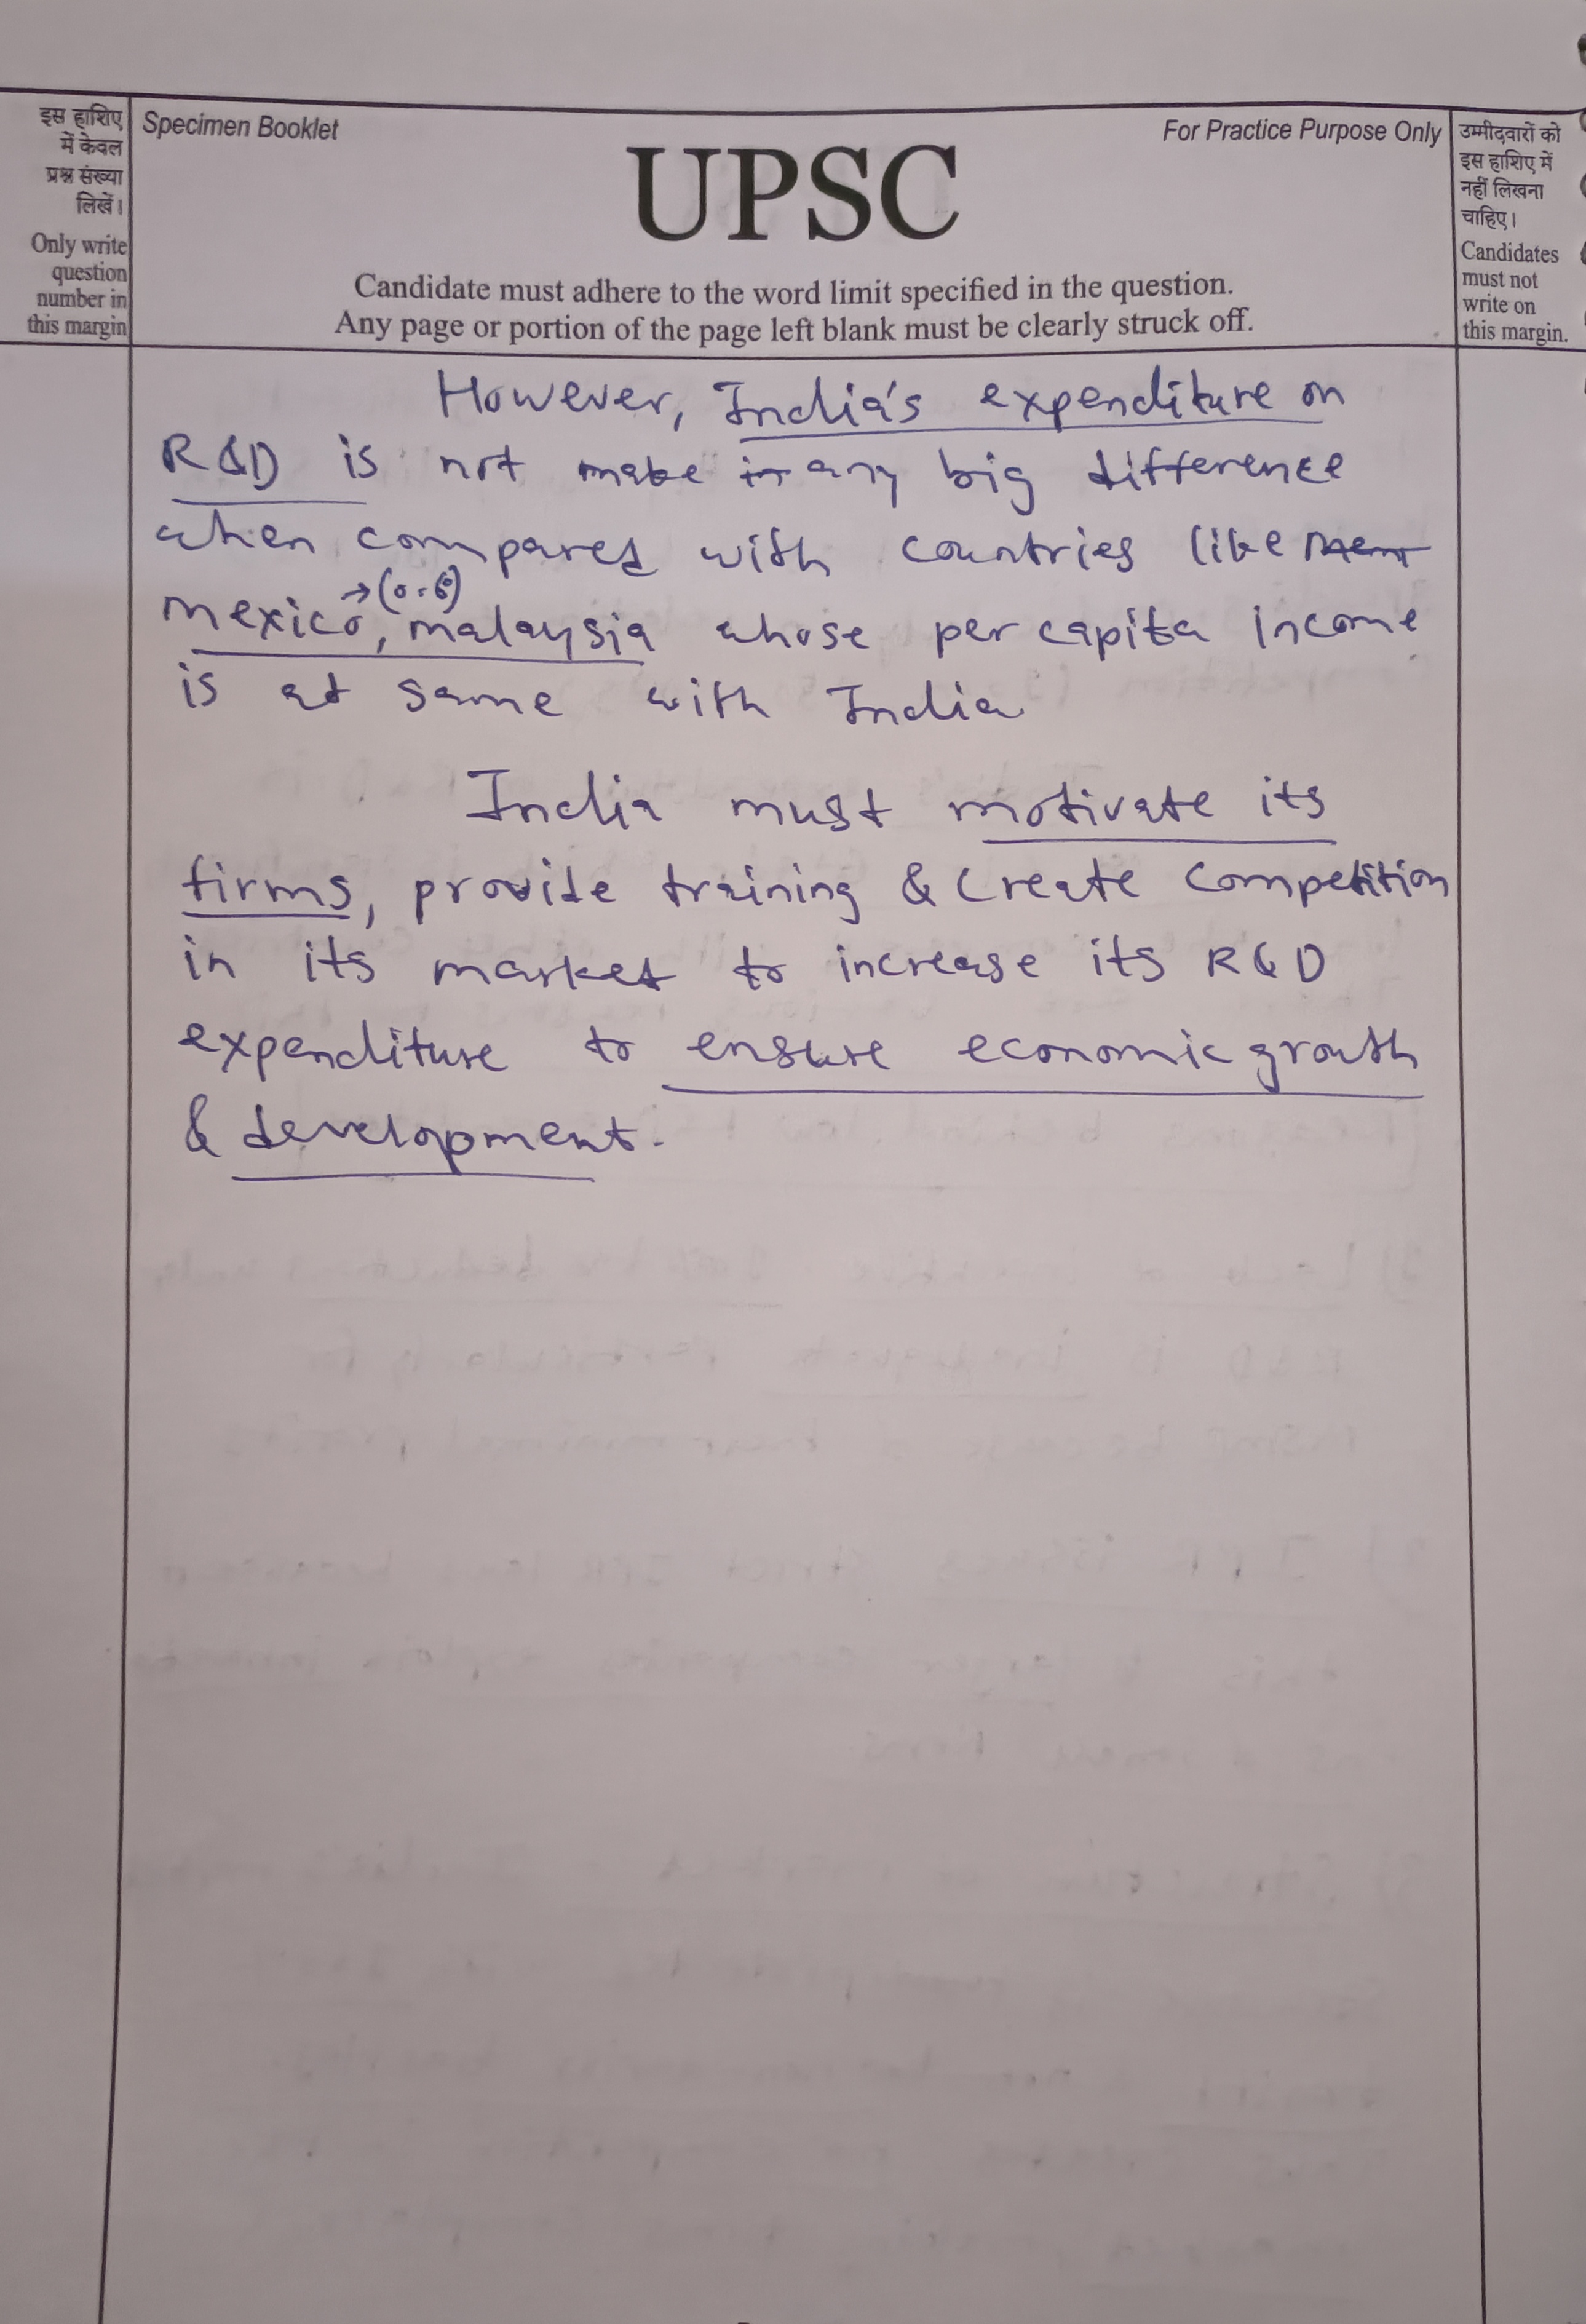 इस हाशिए
में केवल
प्रश्न संख्या
लिखें।
Only write
question
number in
this margin
Specimen Booklet
For Practice Purpose Only
UPSC
Candidate must adhere to the word limit specified in the question.
Any page or portion of the page left blank must be clearly struck off.
उम्मीदवारों को
इस हाशिए में
नहीं लिखना
चाहिए।
Candidates
must not
write on
this margin.
However, India's expenditure on
R&D is not make in any big difference
when compared with countries like
→(0.6)
mexico, malaysia whose per capita income
is at same with India
India must motivate its
firms, provide training & create competition
in its market to increase its R&D
expenditure to ensure economic growth
& development.